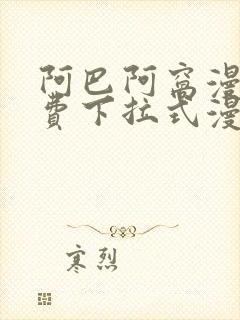 阿巴阿窝漫
费下拉式漫
寒烈